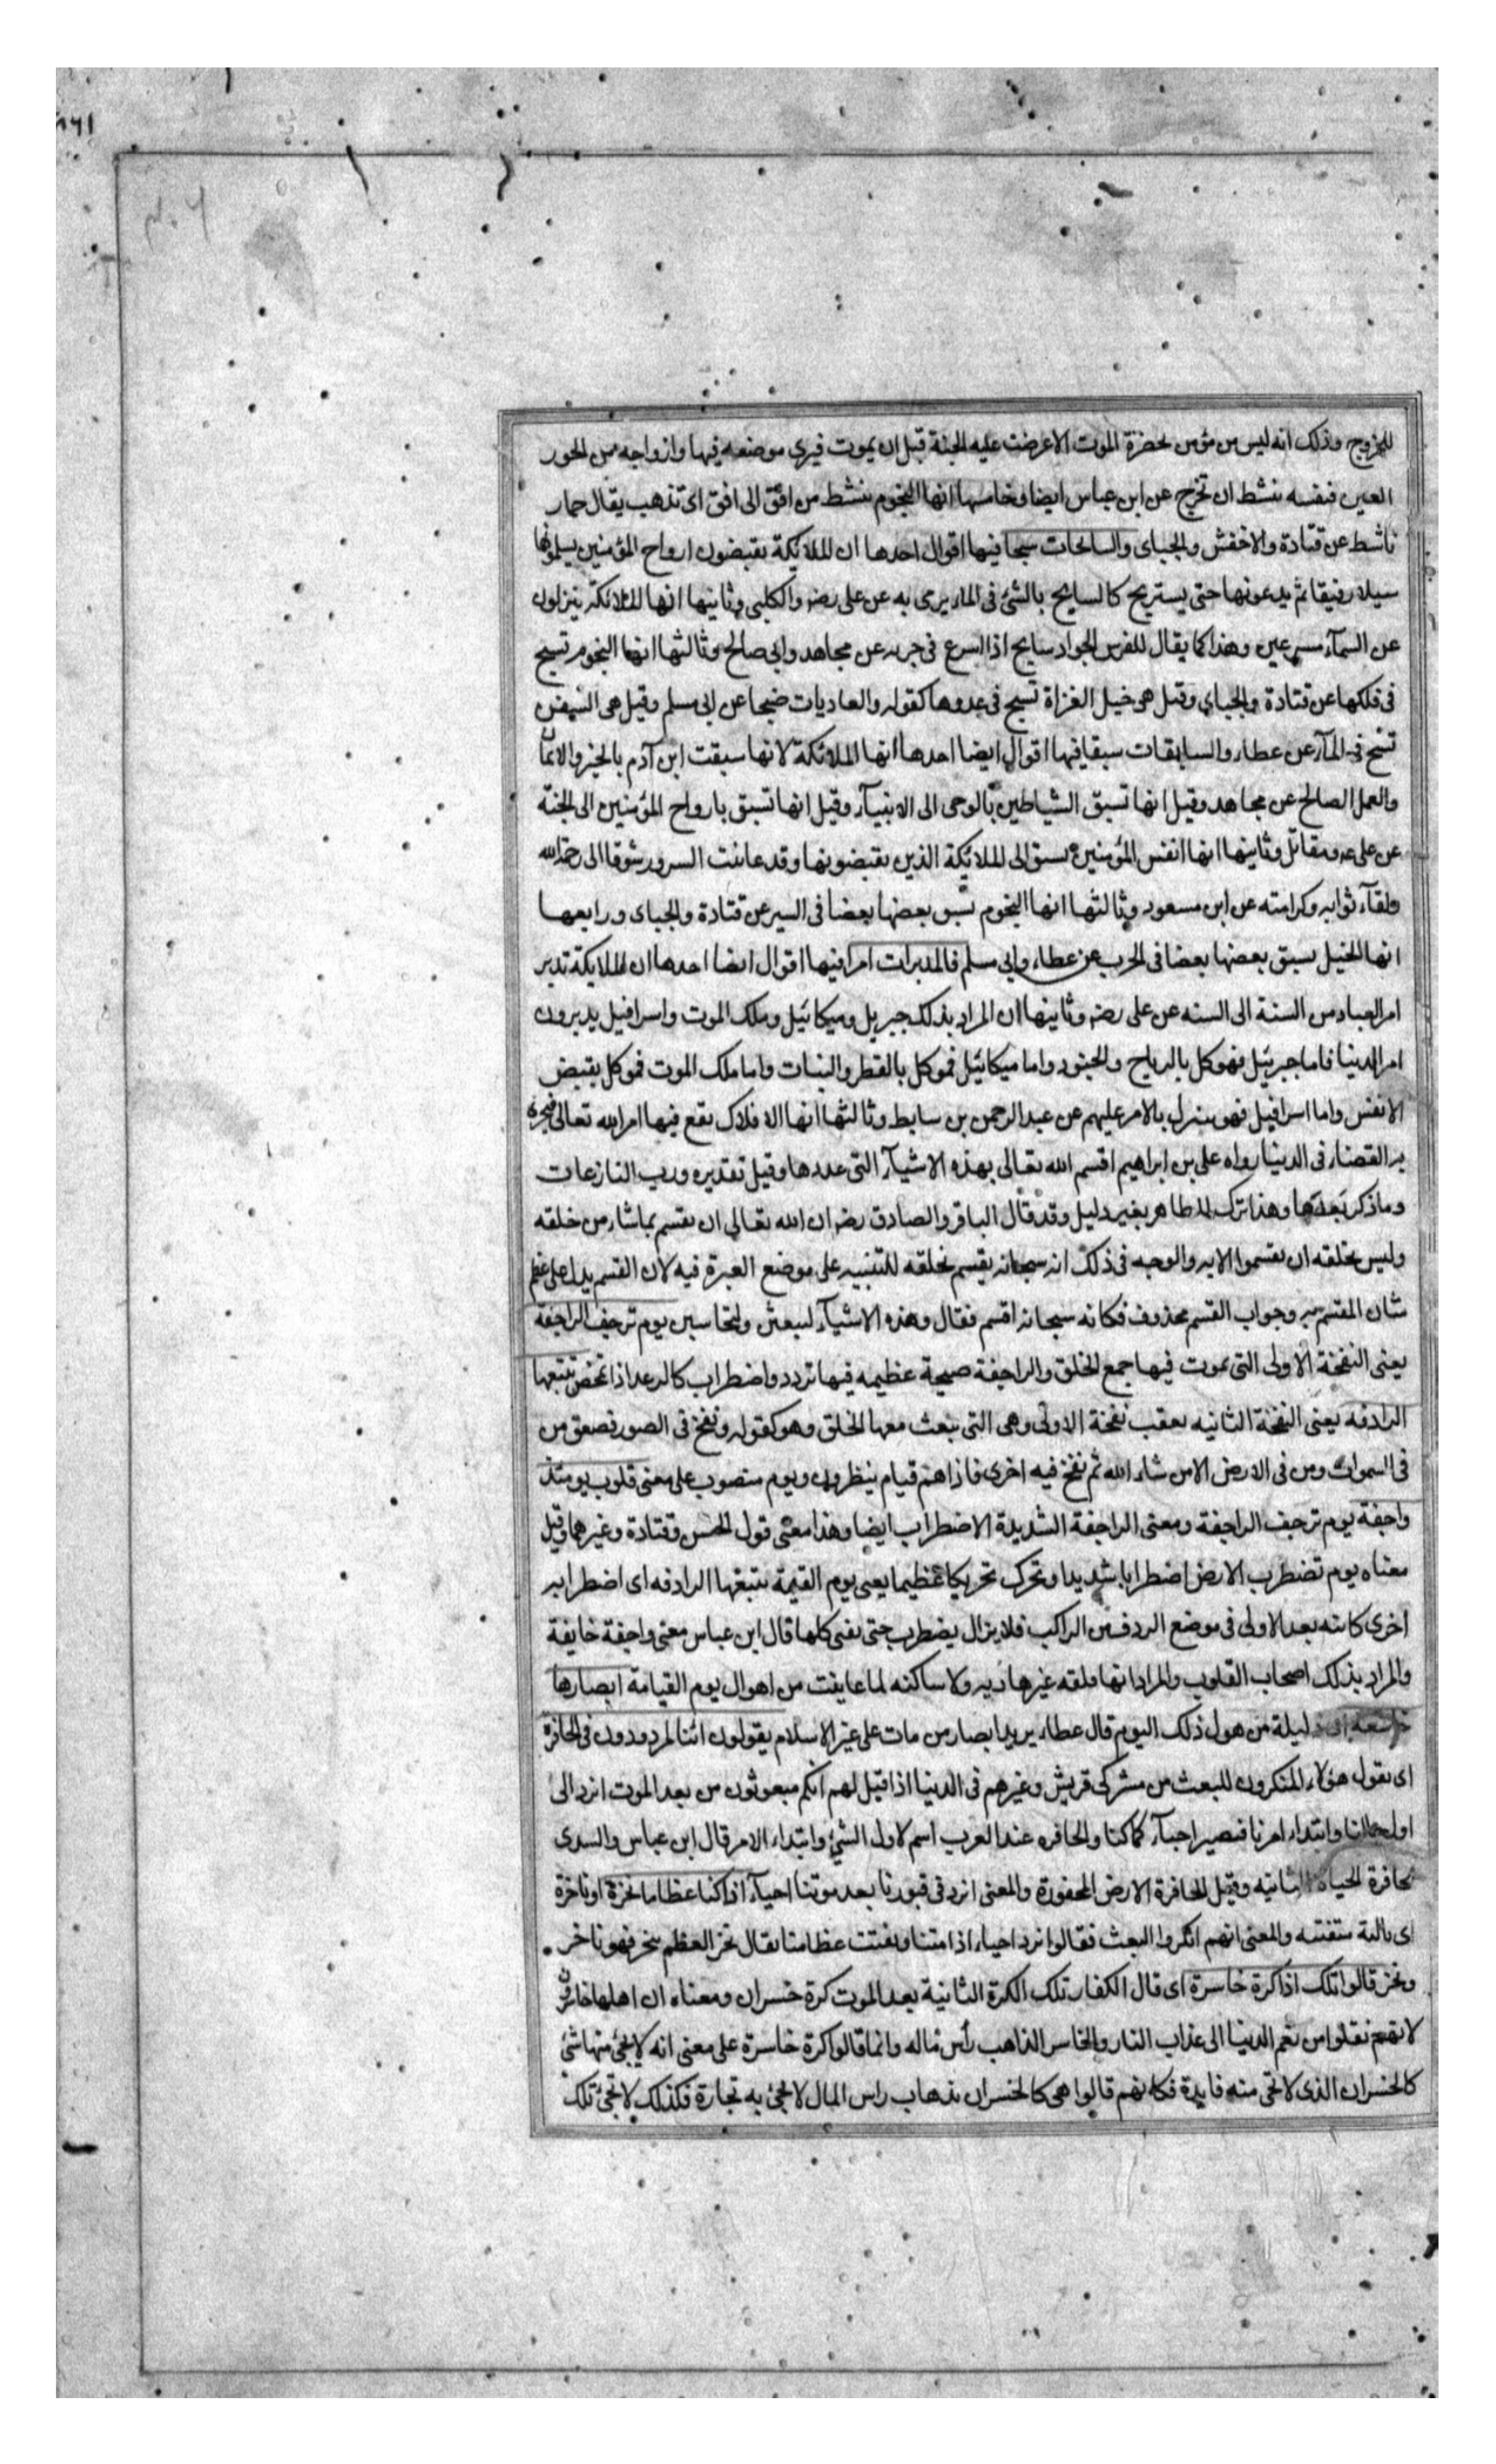 ١٦١
٣٠٦
للخروج وذلك انه ليس من مؤمن يحضره الموت الا عرضت عليه الجنة قبل ان يموت فيرى موضعه فيها وازواجه من الحور
العين فنفسه تنشط ان تخرج عن ابن عباس ايضا وخامسها انها النجوم تنشط من افق الى افق اى تذهب يقال حمار
ناشط عن قتادة والاخفش والجبائى والسابحات سبحا فيها اقوال احدها ان الملائكة يقبضون ارواح المؤمنين يسلونها
سيلا رفيقا ثم يدعونها حتى يستريح كالسابح بالشئ فى الماء يرمى به عن على رضه والكلبى وثانيها انها الملائكة ينزلون
عن السمآء مسرعين وهذا كما يقال للفرس الجواد سابح اذا اسرع فى جريه عن مجاهد وابى صالح وثالثها انها النجوم تسبح
فى فلكها عن قتادة والجباى وقيل هى خيل الغزاة تسبح فى عدوها كقوله والعاديات ضبحا عن ابى مسلم وقيل هى السفن
تسبح فى المآء عن عطاء والسابقات سبقا فيها اقوال ايضا احدها انها الملائكة لانها سبقت ابن آدم بالخير والايمان
والعمل الصالح عن مجاهد وقيل انها تسبق الشياطين بالوحى الى الانبيآء وقيل انها تسبق بارواح المؤمنين الى الجنة
عن على عه ومقاتل وثانيها انها انفس المؤمنين تسبق الى الملائكة الذين يقبضونها وقد عاينت السرور شوقا الى رحمة الله
ولقآء ثوابه وكرامته عن ابن مسعود وثالثها انها النجوم تسبق بعضها بعضا فى السير عن قتادة والجباى ورابعها
انها الخيل يسبق بعضها بعضا فى الحرب عن عطاء وابى مسلم فالمدبرات امرا فيها اقوال ايضا احدها ان الملايكة تدبر
امر العباد من السنة الى السنه عن على رضه وثانيها ان المراد بذلك جبريل وميكائيل وملك الموت واسرافيل يدبرون
امر الدنيا فاما جبرئيل فهو كل بالرياح والجنود واما ميكائيل فموكل بالقطر والنبات واما ملك الموت فموكل بقبض
الانفس واما اسرافيل فهو ينزل بالامر عليهم عن عبد الرحمن بن سابط وثالثها انها الافلاك يقع فيها امر الله تعالى فيجرى
به القضاء فى الدنيا رواه على بن ابراهيم اقسم الله تعالى بهذه الاشيآء التى عددها وقيل تقديره ورب النازعات
وما ذكر بعدها وهذا ترك للظاهر بغير دليل وقد قال الباقر والصادق رضه ان الله تعالى ان يقسم بما شاء من خلقه
وليس لخلقه ان يقسموا الا به والوجه فى ذلك انه سبحانه يقسم بخلقه للتنبيه على موضع العبرة فيه لان القسم يدل على عظم
شان المقسم به وجواب القسم محذوف فكانه سبحانه اقسم فقال وهذه الاشيآء لتبعثن ولتحاسبن يوم ترجف الراجفة
يعنى النفخة الاولى التى يموت فيها جميع الخلق والراجفة صيحة عظيمه فيها تردد واضطراب كالرعد اذا تمخض تتبعها
الرادفه يعنى النفخة الثانيه يعقب نفخة الاولى وهى التى يبعث معها الخلق وهو كقوله ونفخ فى الصور فصعق من
فى السموات ومن فى الارض الا من شاء الله ثم نفخ فيه اخرى فاذا هم قيام ينظرون ويوم منصوب على معنى قلوب يومئذ
واجفة يوم ترجف الراجفة ومعنى الراجفة الشديدة الاضطراب ايضا وهذا معنى قول الحسن وقتادة وغيرهما وقيل
معناه يوم تضطرب الارض اضطرابا شديدا وتحرك تحريكا عظيما يعنى يوم القيمة تتبعها الرادفه اى اضطرابه
اخرى كائنه بعد الاولى فى موضع الردف من الراكب فلا يزال يضطرب حتى تفنى كلها قال ابن عباس معنى واجفة خايفة
والمراد بذلك اصحاب القلوب والمراد انها قلقه غير هاديه ولا ساكنه لما عاينت من اهوال يوم القيامة ابصارها
خاشعه اى ذليلة من هول ذلك اليوم قال عطاء يريد ابصار من مات على غير الاسلام يقولون ائنا لمردودون فى الحافرة
اى يقول هؤلاء المنكرون للبعث من مشركى قريش وغيرهم فى الدنيا اذا قيل لهم انكم مبعوثون من بعد الموت انرد الى
اول حالنا وابتداء امرنا فنصير احيآء كما كنا والحافره عند العرب اسم لاول الشئ وابتداء الامر قال ابن عباس والسدى
الحافرة الحياة الثانيه وقيل الحافرة الارض المحفورة والمعنى انرد فى قبورنا بعد موتنا احيآء اذا كنا عظاما نخرة او ناخرة
اى بالية متفتته والمعنى انهم انكروا البعث فقالوا نرد احياء اذا متنا وتفتتت عظامنا يقال نخر العظم ينخر فهو ناخر
ونخر قالوا تلك اذا كرة خاسرة اى قال الكفار تلك الكرة الثانية بعد الموت كرة خسران ومعناه ان اهلها خاسرون
لانهم نقلوا من نعم الدنيا الى عذاب النار والخاسر الذاهب رأس ماله وانما قالوا كرة خاسرة على معنى انه لا يجئ منها شئ
كالخسران الذى لا تجى منه فايدة فكانهم قالوا هى كالخسران بذهاب راس المال لا تجئ به تجارة فكذلك لا تجئ تلك